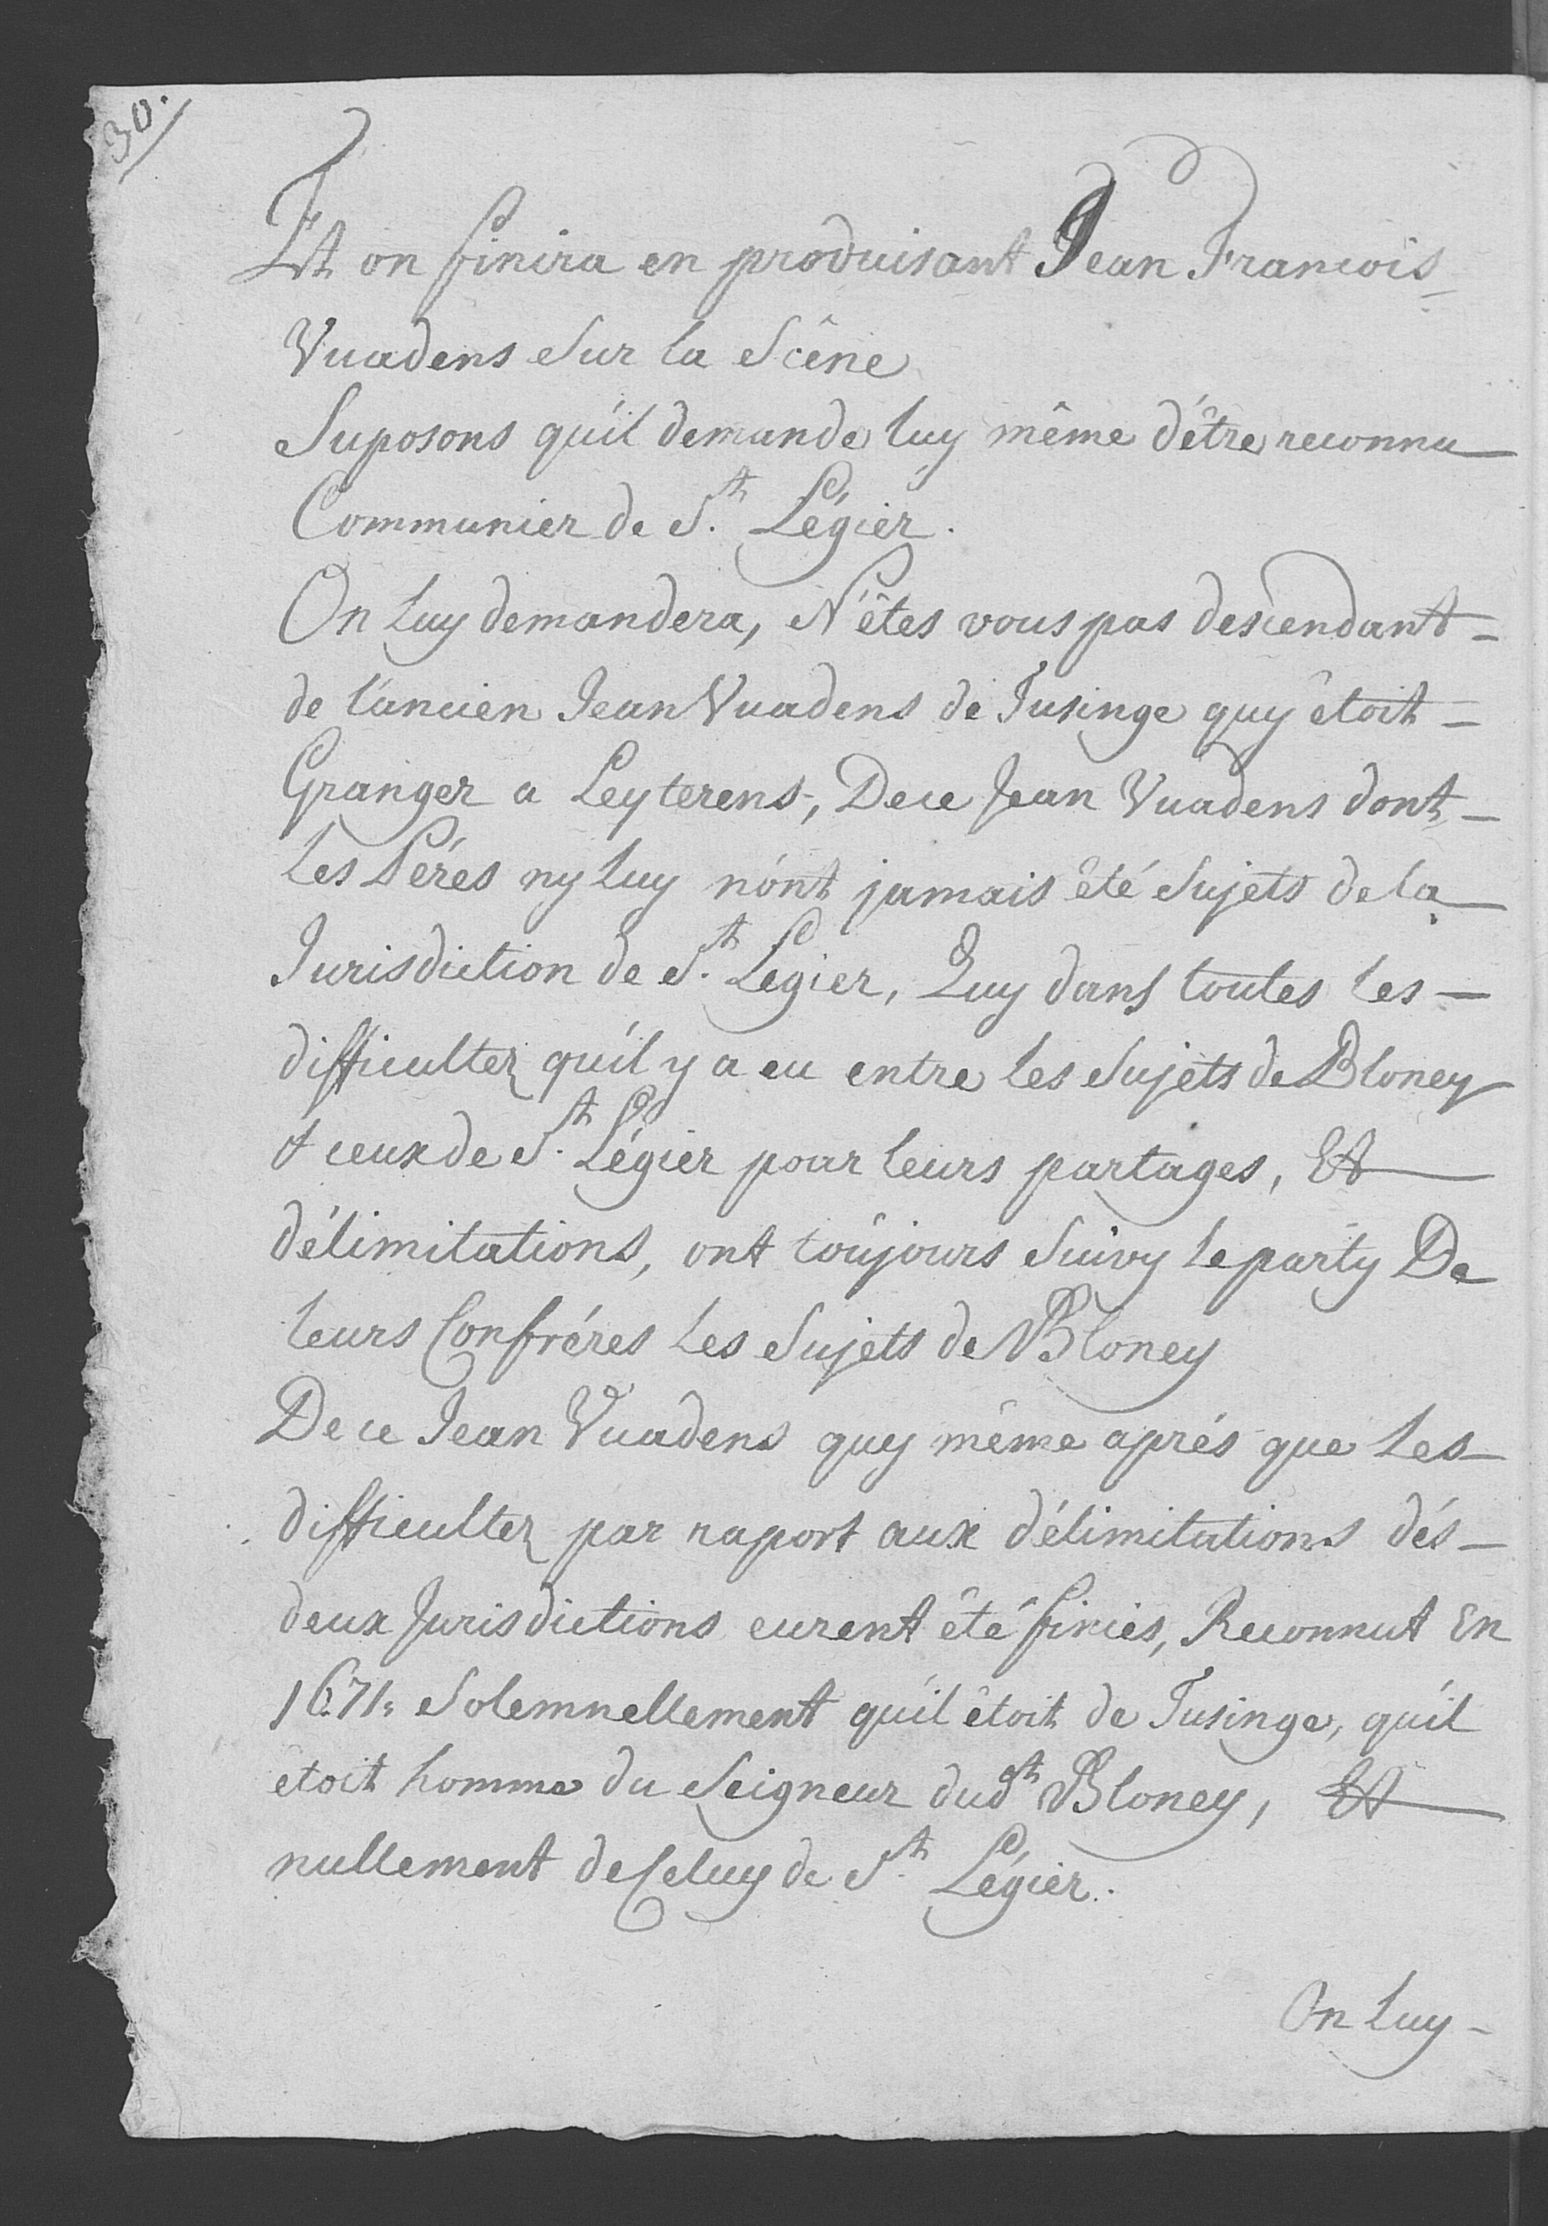 30.
Et on finira en produisant Jean Francois
Vuadens sur la Scêne
Suposons qu'il demande luy même d'être reconnu
Communier de St. Légier.
On luy demandera, N'êtes vous pas descendant
de l'ancien Jean Vuadens de Tusinge quy êtoit
Granger a Leyterens, De ce Jean Vuadens dont
les Péres ny luy n'ont jamais êté Sujets de la
Jurisdiction de St. Legier, Quy dans toutes les
difficultez qu'il y a eu entre les Sujets de Bloney
& ceux de St. Légier pour leurs partages, Et
délimitations, ont toûjours Suivy le party De
leurs Confréres les Sujets de Bloney
De ce Jean Vuadens quy même aprés que les
difficultez par raport aux délimitations dés
deux Jurisdictions eurent êté finies, Reconnut En
1671. Solemnellement qu'il êtoit de Tusinge, qu'il
etoit homme du Seigneur dudt Bloney, Et
nullement de Celuy de St. Légier.
On luy